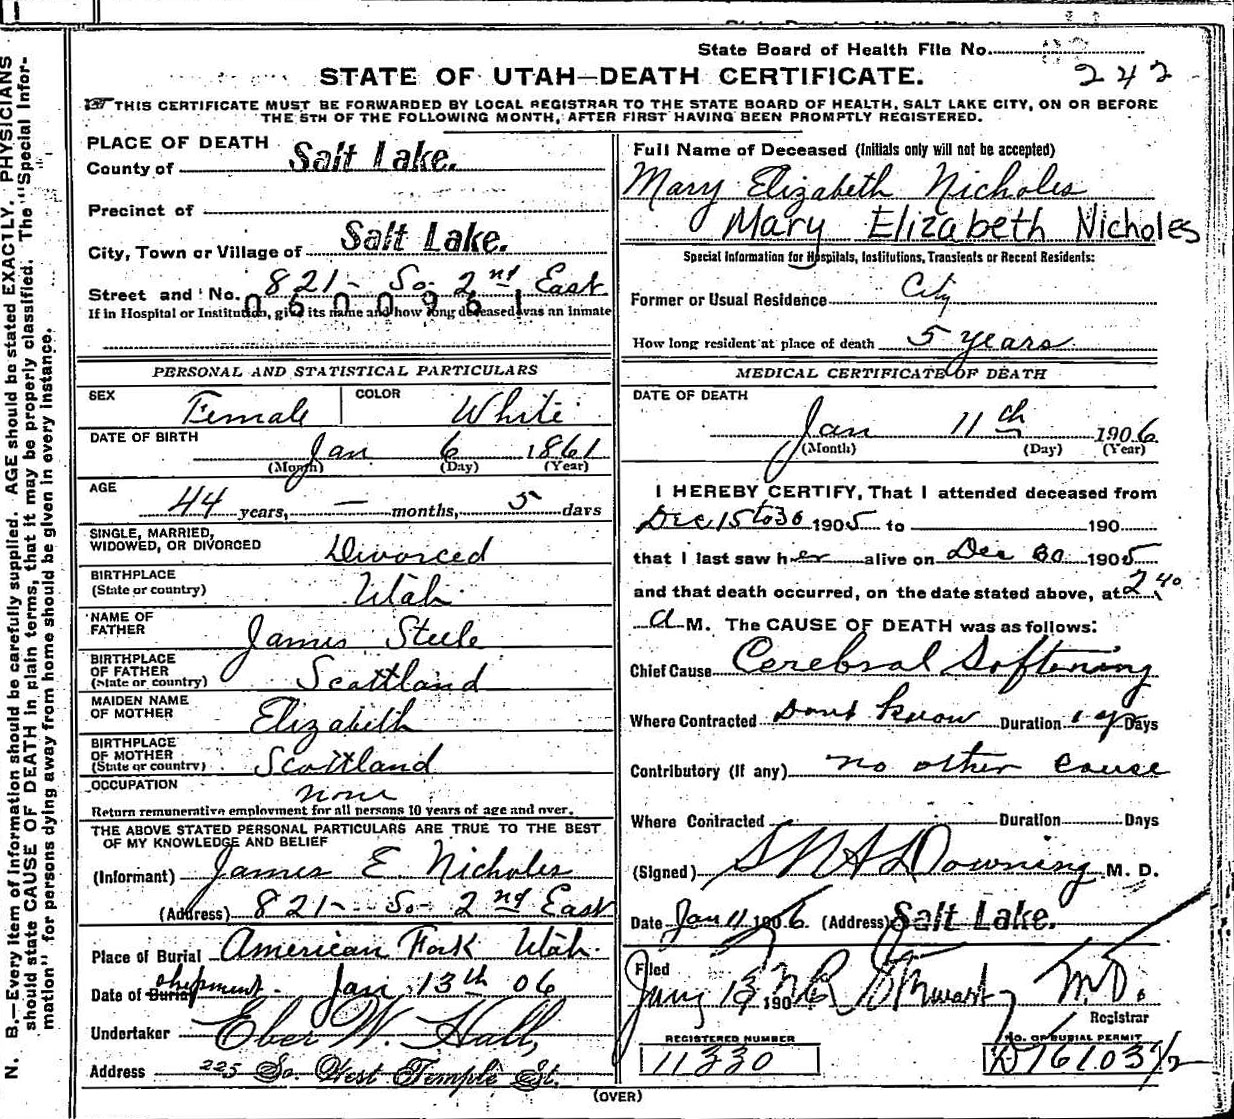 State Board of Health File No.
242
STATE OF UTAH—DEATH CERTIFICATE.
THIS CERTIFICATE MUST BE FORWARDED BY LOCAL REGISTRAR TO THE STATE BOARD OF HEALTH, SALT LAKE CITY, ON OR BEFORE
THE 5TH OF THE FOLLOWING MONTH, AFTER FIRST HAVING BEEN PROMPTLY REGISTERED.
PLACE OF DEATH
County of Salt Lake.
Precinct of
City, Town or Village of Salt Lake.
Street and No. 821- So- 2nd East
0600961
If in Hospital or Institution, give its name and how long deceased was an inmate
PERSONAL AND STATISTICAL PARTICULARS
SEX Female COLOR White
DATE OF BIRTH
Jan 6 1861
(Month) (Day) (Year)
AGE
44 years, — months, 5 days
SINGLE, MARRIED,
WIDOWED, OR DIVORCED Divorced
BIRTHPLACE
(State or country) Utah.
NAME OF
FATHER James Steele
BIRTHPLACE
OF FATHER
(State or country) Scottland
MAIDEN NAME
OF MOTHER Elizabeth
BIRTHPLACE
OF MOTHER
(State or country) Scottland
OCCUPATION none
Return remunerative employment for all persons 10 years of age and over.
THE ABOVE STATED PERSONAL PARTICULARS ARE TRUE TO THE BEST
OF MY KNOWLEDGE AND BELIEF
(Informant) James E. Nicholes
(Address) 821- So- 2nd East
Place of Burial American Fork Utah.
Date of Burial shipment. Jan 13th 06
Undertaker Eber W. Hall,
Address 225 So. West Temple St.
Full Name of Deceased (Initials only will not be accepted)
Mary Elizabeth Nicholes
Mary Elizabeth Nicholes
Special Information for Hospitals, Institutions, Transients or Recent Residents:
Former or Usual Residence City
How long resident at place of death 5 years
MEDICAL CERTIFICATE OF DEATH
DATE OF DEATH
Jan 11th 1906
(Month) (Day) (Year)
I HEREBY CERTIFY, That I attended deceased from
Dec 15 to 30 1905 to 190
that I last saw her alive on Dec 30 1905
and that death occurred, on the date stated above, at 2 40
a M. The CAUSE OF DEATH was as follows:
Chief Cause Cerebral Softening
Where Contracted Dont know Duration 1 yr Days
Contributory (if any) no other cause
Where Contracted Duration Days
(Signed) Downing M. D.
Date Jan 11 1906. (Address) Salt Lake.
Filed
190 M.D.
Registrar
REGISTERED NUMBER
11330
NO. OF BURIAL PERMIT
(OVER)
N. B.—Every item of information should be carefully supplied. AGE should be stated EXACTLY. PHYSICIANS
should state CAUSE OF DEATH in plain terms, that it may be properly classified. The "Special Infor-
mation" for persons dying away from home should be given in every instance.